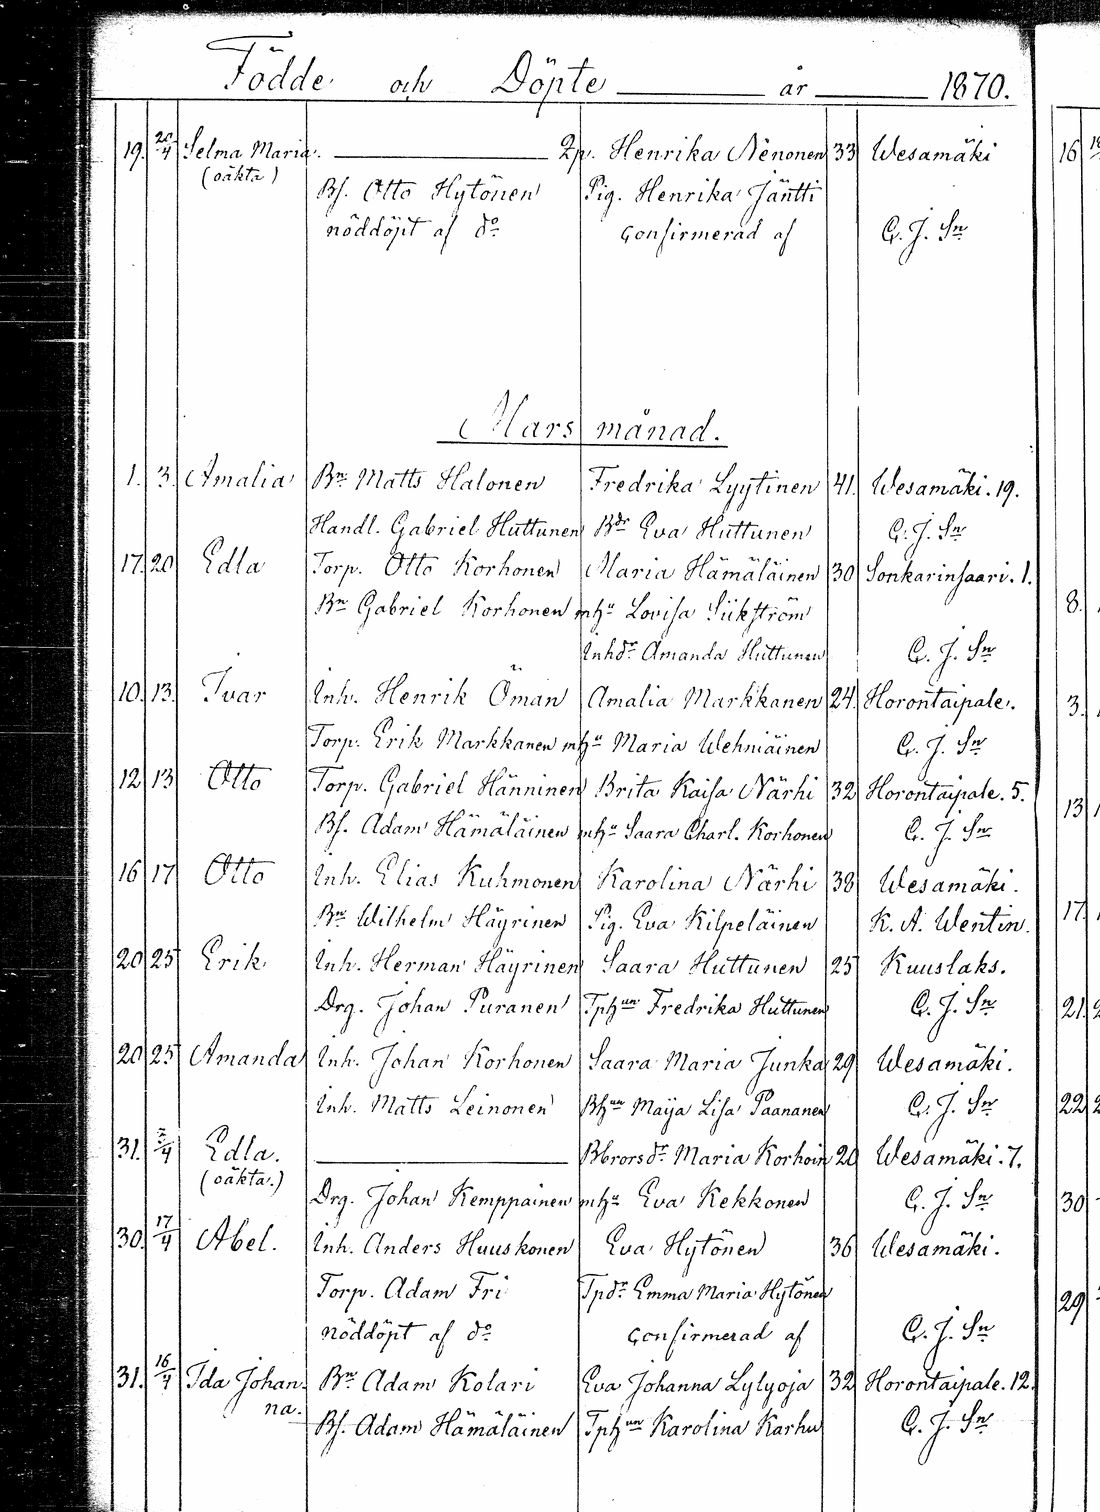 Födde och Döpte år 1870.
19. 20/4 Selma Maria. 2p. Henrika Nenonen 33 Wesamäki 16
(oäkta) Bs. Otto Hytönen Pig. Henrika Jäntti
nöddöpt af do confirmerad af G. J. Sn
Mars månad.
1. 3. Amalia Bn Matts Halonen Fredrika Lyytinen 41. Wesamäki. 19.
Handl. Gabriel Huttunen Bdr Eva Huttunen G. J. Sn
17. 20 Edla Torp. Otto Korhonen Maria Hämäläinen 30 Sonkarinsaari. 1.
Bn Gabriel Korhonen mhu Lovisa Siikström 8.
Inhdr Amanda Huttunen G. J. Sn
10. 13. Ivar Inh. Henrik Öman Amalia Markkanen 24. Horontaipale. 3.
Torp. Erik Markkanen mhu Maria Wehniäinen G. J. Sn
12 13 Otto Torp. Gabriel Hänninen Brita Kaisa Närhi 32 Horontaipale. 5. 13
Bs. Adam Hämäläinen mhu Saara Charl. Korhonen G. J. Sn
16 17 Otto Inh. Elias Kuhmonen Karolina Närhi 38 Wesamäki.
Bn Wilhelm Häyrinen Pig. Eva Kilpeläinen K. A. Wentin. 17
20 25 Erik Inh. Herman Häyrinen Saara Huttunen 25 Kuuslaks.
Drg. Johan Puranen Tphun Fredrika Huttunen G. J. Sn 21.
20 25 Amanda Inh. Johan Korhonen Saara Maria Junka 29 Wesamäki.
Inh. Matts Leinonen Bhun Maija Lisa Paananen G. J. Sn 22
31. /4 Edla. Bbrorsdr Maria Korhoin 20 Wesamäki. 7.
(oäkta.) Drg. Johan Kemppainen mhu Eva Kekkonen G. J. Sn 30
30. 17/4 Abel. Inh. Anders Huuskonen Eva Hytönen 36 Wesamäki.
Torp. Adam Fri Tpdr Emma Maria Hytönen 29
nöddöpt af do confirmerad af G. J. Sn
31. 16/4 Ida Johan- Bn Adam Kolari Eva Johanna Lylyoja 32 Horontaipale. 12.
na. Bs. Adam Hämäläinen Tphun Karolina Karhu G. J. Sn